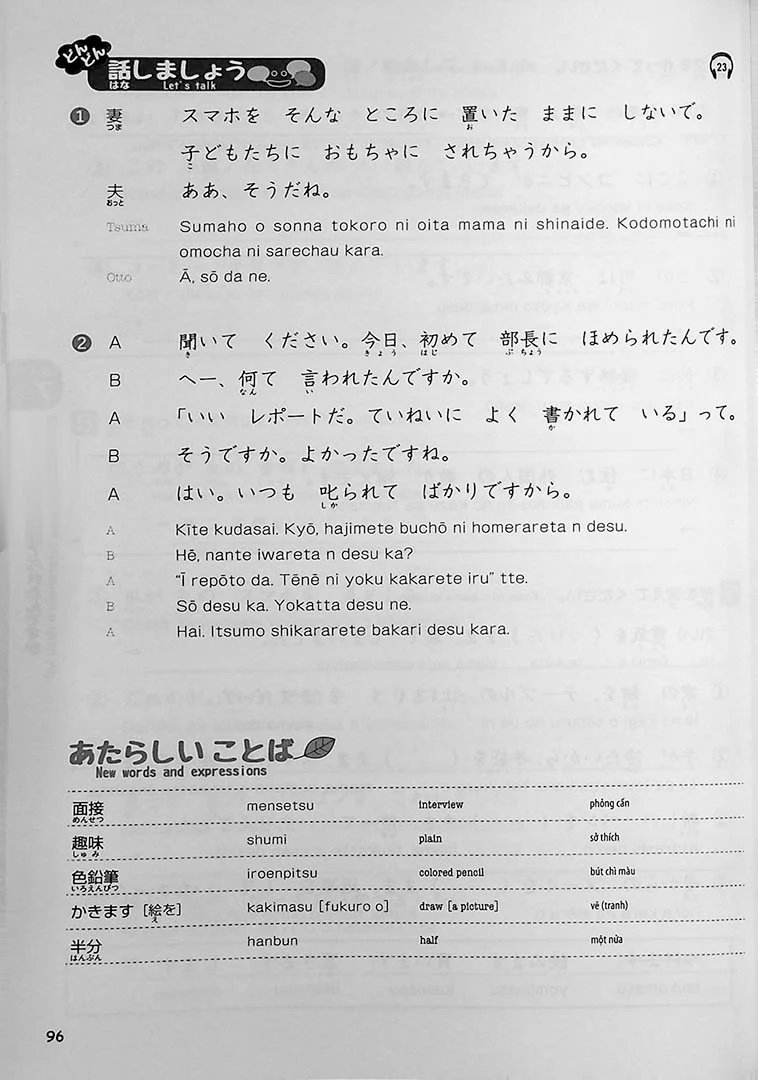 どんどん
話しましょう
はな
Let's talk
23
1 妻 スマホを そんな ところに 置いた ままに しないで。
つま お
子どもたちに おもちゃに されちゃうから。
こ
夫 ああ、そうだね。
おっと
Tsuma Sumaho o sonna tokoro ni oita mama ni shinaide. Kodomotachi ni
omocha ni sarechau kara.
Otto Ā, sō da ne.
2 A 聞いて ください。今日、初めて 部長に ほめられたんです。
き きょう はじ ぶちょう
B へー、何て 言われたんですか。
なん い
A 「いい レポートだ。ていねいに よく 書かれて いる」って。
か
B そうですか。よかったですね。
A はい。いつも 叱られて ばかりですから。
しか
A Kīte kudasai. Kyō, hajimete buchō ni homerareta n desu.
B Hē, nante iwareta n desu ka?
A "Ī repōto da. Tēnē ni yoku kakarete iru" tte.
B Sō desu ka. Yokatta desu ne.
A Hai. Itsumo shikararete bakari desu kara.
あたらしい ことば
New words and expressions
面接 mensetsu interview phỏng cấn
めんせつ
趣味 shumi plain sở thích
しゅみ
色鉛筆 iroenpitsu colored pencil bút chì màu
いろえんぴつ
かきます [絵を] kakimasu [fukuro o] draw [a picture] vẽ (tranh)
え
半分 hanbun half một nửa
はんぶん
96